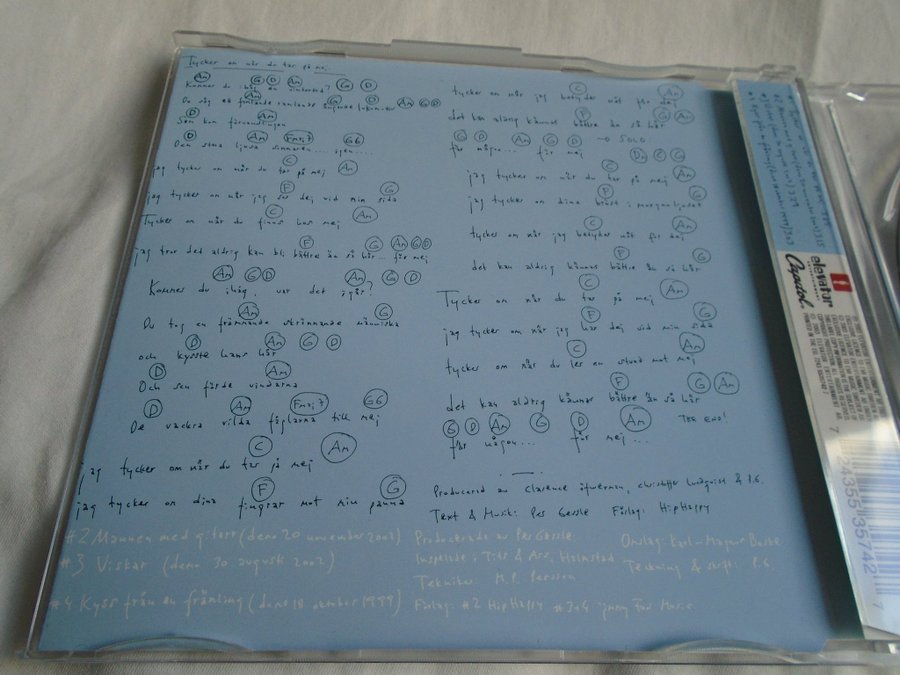 Tycker om när du tar på mej
Am G D Am G D
Kommer du ihåg en vinterdag?
Am G Am G D
Du såg ett
D Am
Som kom
D Am Fmaj7 G6
Den stora ljusa sommaren.... igen...
C Am
jag tycker om när du tar på mej
F G
jag tycker om när jag ser dej vid min sida
C Am
Tycker om när du finns hos mej
F G Am G D
jag tror det aldrig kan bli bättre än så här... för mej
Am G D Am G D
Kommer du ihåg, var det igår?
Am G
Du tog en främmande skrämmande människa
D Am G D
och kysste hans hår
D Am
Och sen förde vindarna
D Am Fmaj7 G6
De vackra vilda fåglarna till mej
C Am
jag tycker om när du tar på mej
F G
jag tycker om dina fingrar mot min panna
C Am
tycker om när jag betyder nåt för dej
F G Am
det kan aldrig kännas bättre än så här
G D Am G D → SOLO:
för någon... för mej
Dm C G
C Am
jag tycker om när du tar på mej
F G
jag tycker om dina bröst i morgonljuset
C Am
tycker om när jag betyder nåt för dej
F G
det kan aldrig kännas bättre än så här
C Am
Tycker om när du tar på mej
F G
jag tycker om när jag har dej vid min sida
C Am
tycker om när du ler en stund mot mej
F G Am
det kan aldrig kännas bättre än så här
G D Am G D Am THE END!
för någon... för mej...
Producerad av Clarence Öfwerman, Christoffer Lundquist & P.G.
Text & Musik: Per Gessle Förlag: HipHappy
#2 Mannen med gitarr (demo 20 november 2002)
#3 Viskar (demo 30 augusti 2002)
#4 Kyss från en främling (demo 18 oktober 1999)
Producerade av Per Gessle.
Inspelade i Tits & Ass, Halmstad.
Tekniker M.P. Persson
Förlag: #2 HipHappy #3+4 Jimmy Fun Music
Omslag: Karl-Magnus Boske
Teckning & skrift: P.G.
elevator
Capitol
7 24355 35742 7